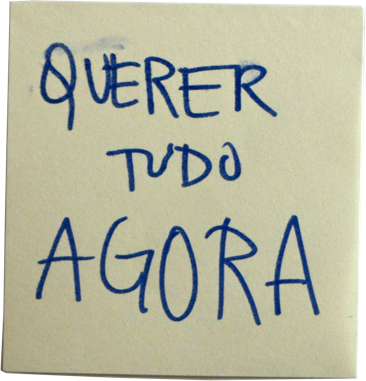 QUERER
TUDO
AGORA